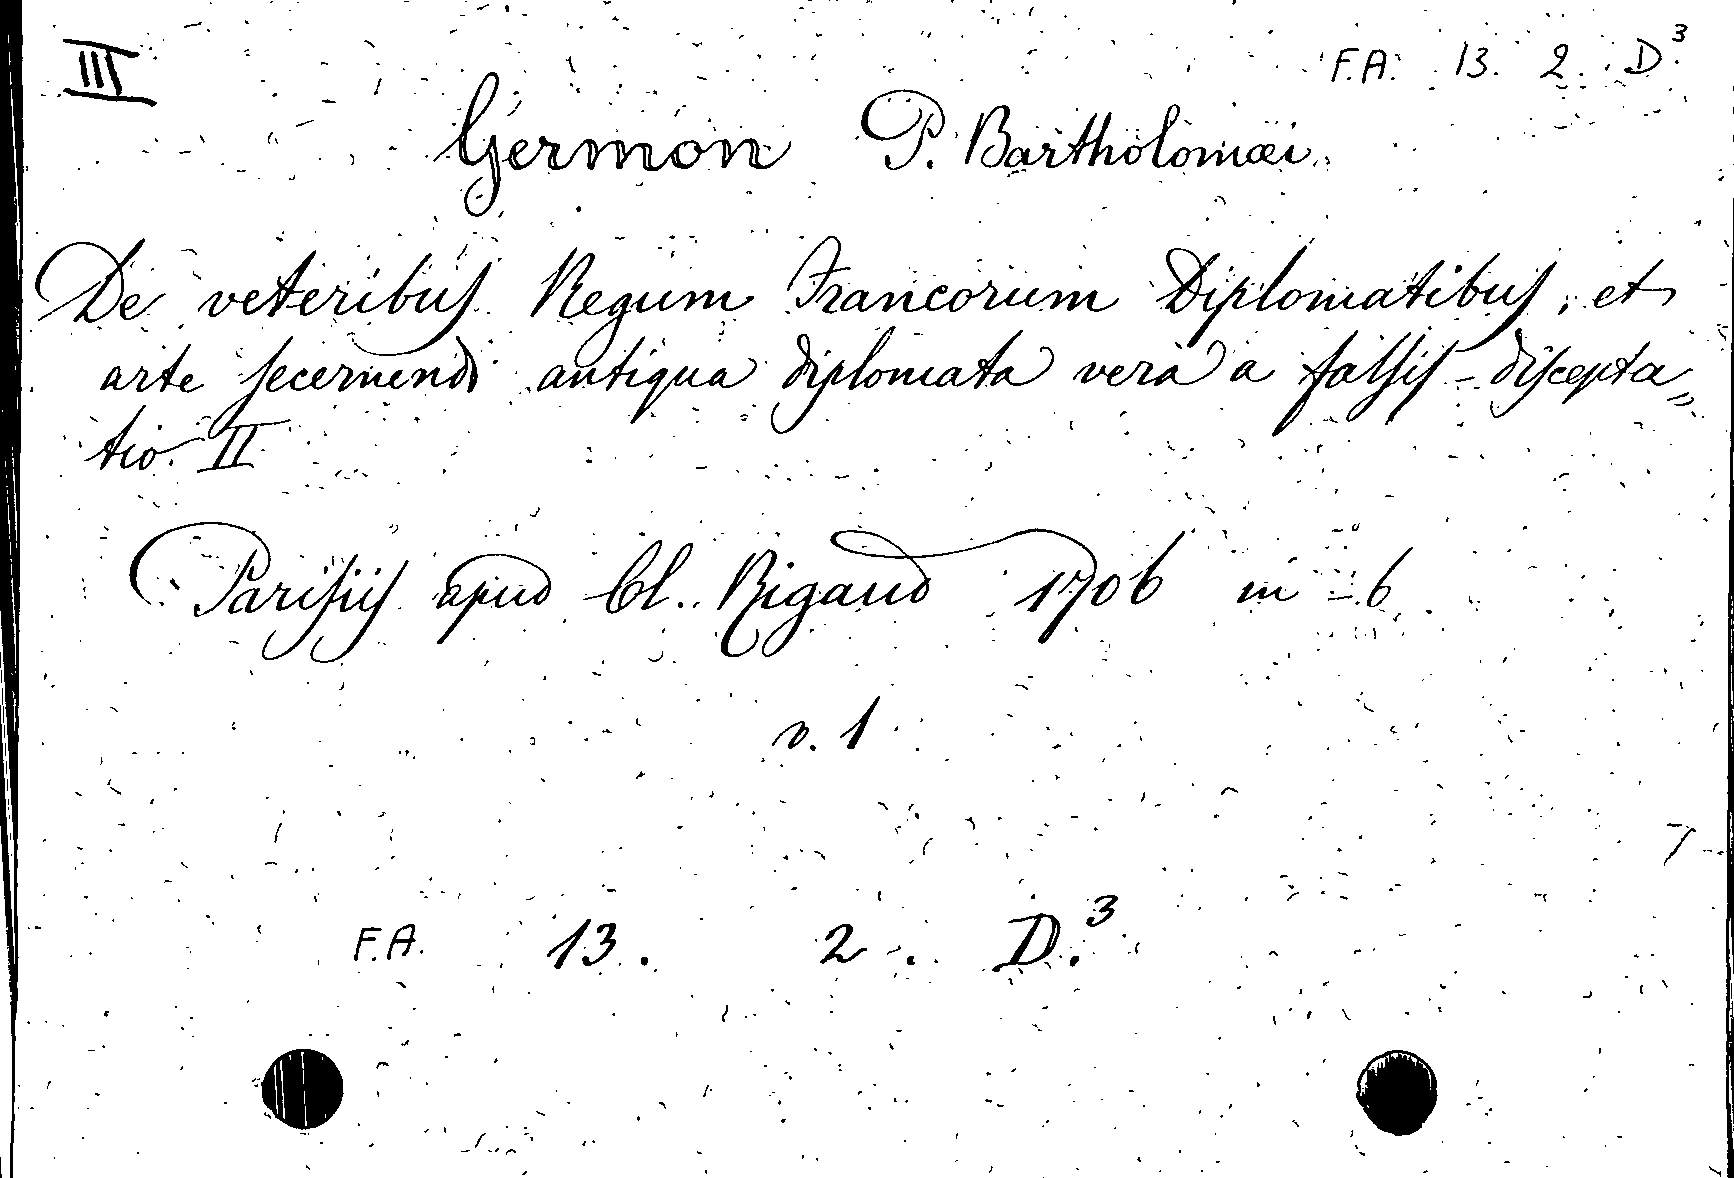 III
F.A. 13. 2. D.³
Germon P. Bartholomæi
De veteribus Regum Francorum Diplomatibus, et
arte secernendi antiqua diplomata vera a falsis – discepta„
tio. II
Parisiis apud Cl. Rigaud 1706 in – 6
v. 1
F.A. 13. 2. D.³